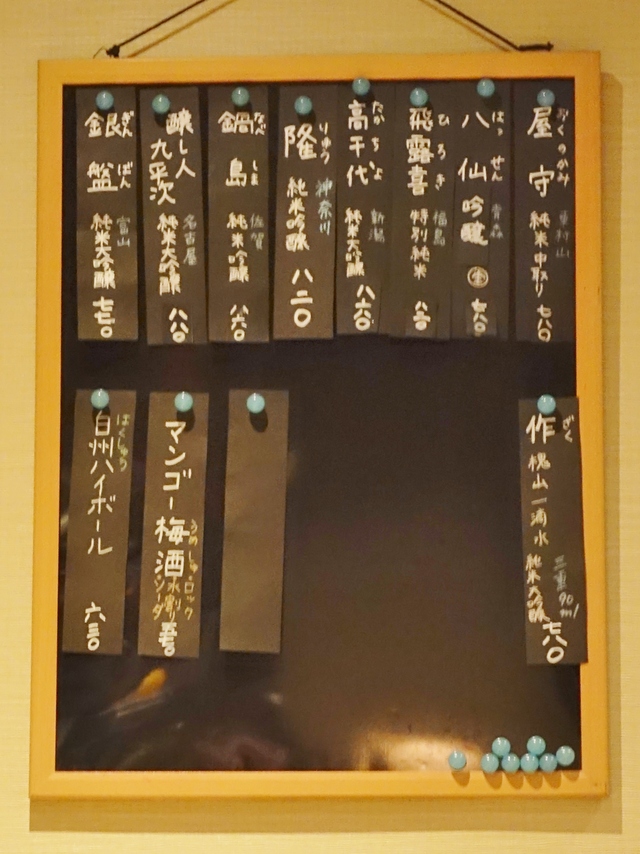 屋守 おくのかみ 東村山
純米中取り 七八〇
八仙 はっせん 青森
吟醸 七八〇
飛露喜 ひろき 福島
特別純米
高千代 たかちよ 新潟
純米大吟醸 八六〇
隆 りゅう 神奈川
純米吟醸 八二〇
鍋島 なべしま 佐賀
純米吟醸 八六〇
醸し人九平次 名古屋
純米大吟醸 八八〇
銀盤 ぎんばん 富山
純米大吟醸
作 ざく
槐山一滴水 三重 90ml
純米大吟醸 七八〇
マンゴー梅酒 うめしゅ・ロック
水割り
ソーダ
白州ハイボール はくしゅう
六三〇